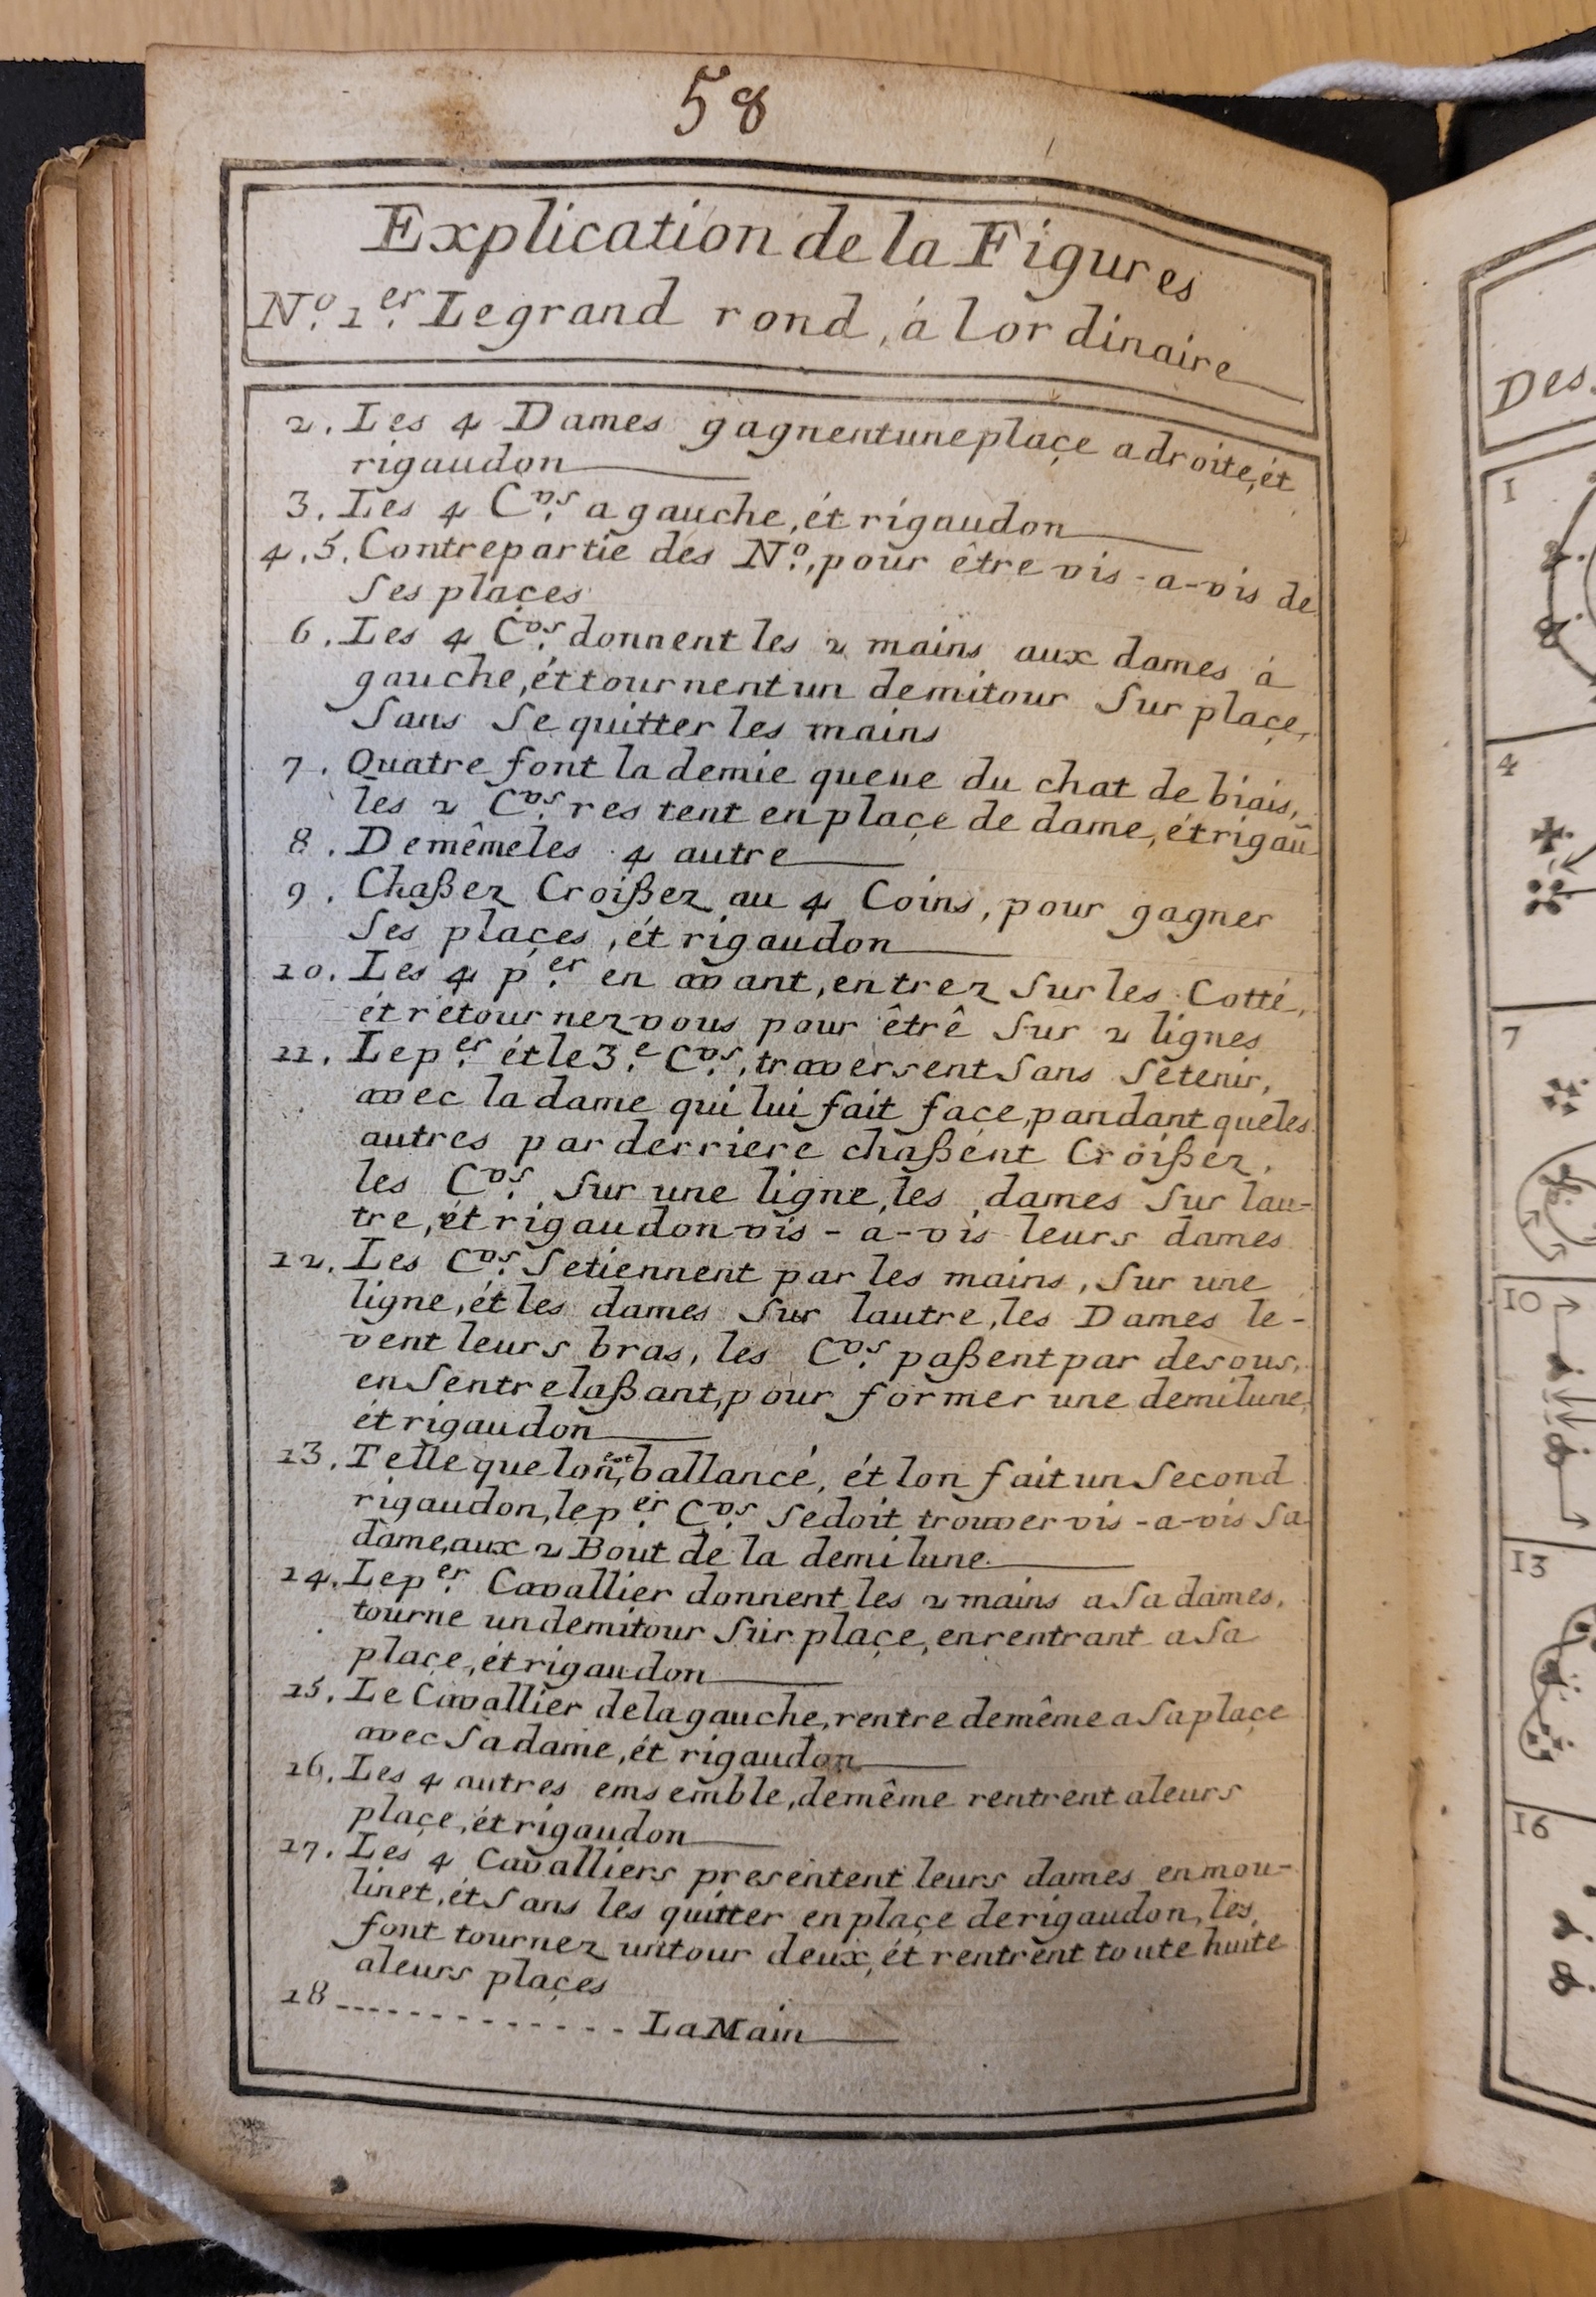 58
Explication de la Figures
N.º 1.er Le grand rond, à lordinaire
2. Les 4 Dames gagnent une plaçe a droite, ét
rigaudon
3. Les 4 C.vs a gauche, ét rigaudon
4.5. Contrepartie des N.º, pour être vis-a-vis de
Ses plaçes
6. Les 4 C.vs donnent les 2 mains aux dames à
gauche, ét tournent un demitour Sur plaçe,
Sans Se quitter les mains
7. Quatre font la demie queue du chat de biais,
les 2 C.vs restent en plaçe de dame, ét rigaũ
8. De même les 4 autre
9. Chaßez Croißez au 4 Coins, pour gagner
Ses plaçes, ét rigaudon
10. Les 4 p.er en avant, entrez Sur les Cotté,
ét rétournez vous pour êtrê Sur 2 lignes
11. Le p.er ét le 3.e C.vs, traversent Sans Sétenir,
avec la dame qui lui fait façe, pandant que les
autres par derriere chaßént Croißéz,
les C.vs Sur une ligne, les dames Sur lau-
tre, ét rigaudon vis-a-vis leurs dames
12. Les C.vs Setiennent par les mains, Sur une
ligne, ét les dames Sur lautre, les Dames le-
vent leurs bras, les C.vs paßent par desous,
en Sentrelaßant, pour former une demilune,
ét rigaudon
13. Telle que lon, est ballancé, ét lon fait un Second
rigaudon, le p.er C.vs Sedoit trouver vis-a-vis Sa
dame, aux 2 Bout de la demilune
14. Le p.er Cavallier donnent les 2 mains a Sa dames,
tourne un demitour Sur plaçe, en rentrant a Sa
plaçe, ét rigaudon
15. Le Cavallier de la gauche, rentre demême a Sa plaçe
avec Sa dame, ét rigaudon
16. Les 4 autres emsemble, demême rentrent aleurs
plaçe, ét rigaudon
17. Les 4 Cavalliers presentent leurs dames en mou-
linet, ét Sans les quitter en plaçe de rigaudon, les
font tournez untour deux, ét rentrent toute huite
aleurs plaçes
18 ------------- La Main
Des
1
4
7
10
13
16